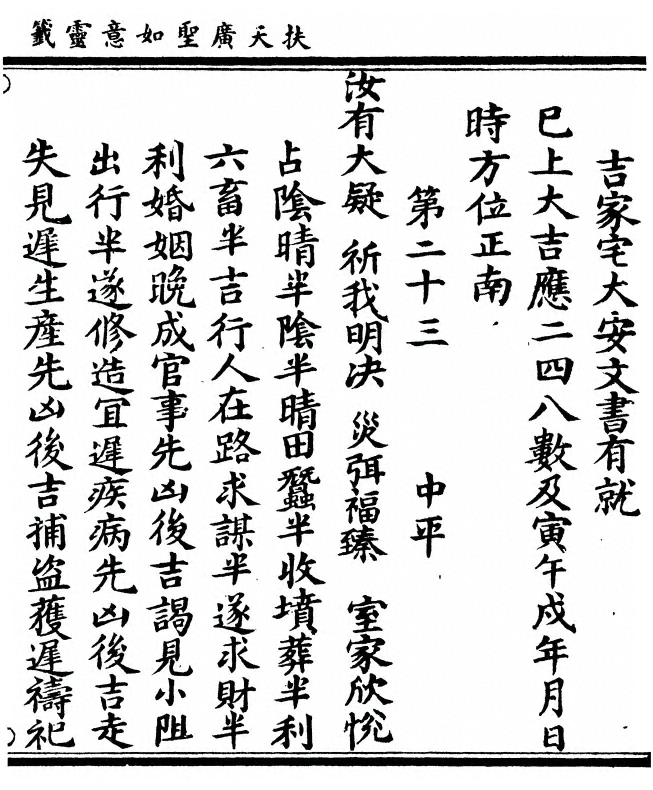 扶天廣聖如意靈籤
吉家宅大安文書有就
巳上大吉應二四八數及寅午戌年月日
時方位正南
第二十三 中平
汝有大疑 祈我明决 災弭福臻 室家欣悅
占陰晴半陰半晴田蠶半收墳葬半利
六畜半吉行人在路求謀半遂求財半
利婚姻晚成官事先凶後吉謁見小阻
出行半遂修造宜遲疾病先凶後吉走
失見遲生產先凶後吉捕盜獲遲禱祀